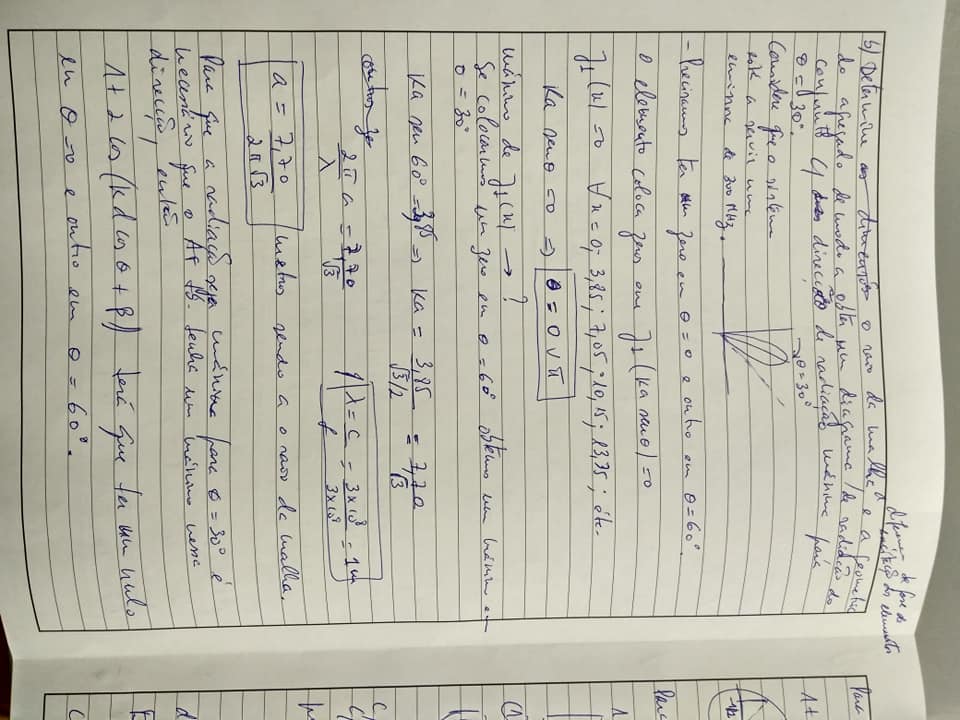 diferença de fase de
excitação dos elementos
b) Determine o raio da malha e a geometria
do agregado de modo a obter um diagrama de radiação do
conjunto c/ direcção de radiação máxima para
θ = 30°.
θ = 30°
Considere que o sistema
está a servir uma
emissora de 300 MHz.
- Precisamos ter um zero em θ = 0 e outro em θ = 60°.
O elemento coloca zeros em J₁(ka senθ) = 0
J₁(x) = 0 ∀x = 0; 3,85; 7,05; 10,15; 13,35; etc.
Ka senθ = 0 => θ = 0 ∨ π
máximo de J₁(x) → ?
Se colocarmos um zero em θ = 60° obtemos um máximo em
θ = 30°
Ka sen 60° = 3,85 => Ka = 3,85 / (√3/2) = 7,70 / √3
2π/λ a = 7,70/√3
λ = c/f = 3x10⁸ / 3x10⁸ = 1m
a = 7,70 / 2π√3 metros sendo a o raio da malha.
Para que a radiação seja máxima para θ = 30° é
necessário que o AF tenha um máximo nessa
direcção, então
1 + 2 cos (Kd cos θ + β) terá que ter um nulo
em θ = 0 e outro em θ = 60°.
Para
1+
-1/2
Para
1
(1
c/
c/
d